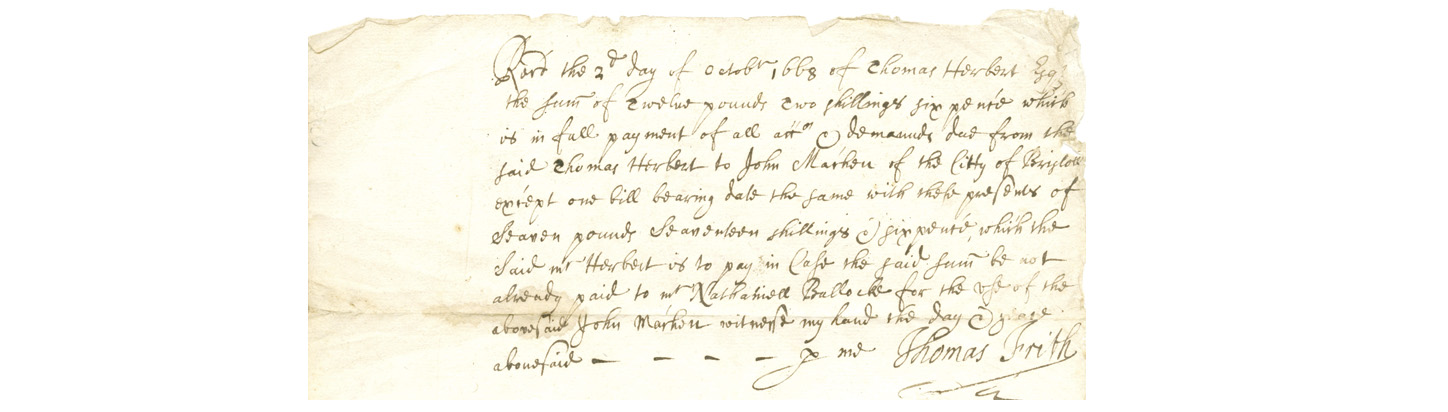 Recd the 2d day of Octobr 1668 of Thomas Herbert Esqr
the sum of Twelve pounds Two shillings six pence which
is in full payment of all acctts & demaunds due from the
said Thomas Herbert to John Marken of the Citty of Bristoll
except one bill bearing date the same with these presents of
Seaven pounds Seaventeen shillings & sixpence, which the
Said mr Herbert is to pay in Case the said sum be not
already paid to mr Nathaniell Ballocke for the use of the
abovesaid John Marken witnesse my hand the day & yeare
abovesaid — — — — p me Thomas Frith